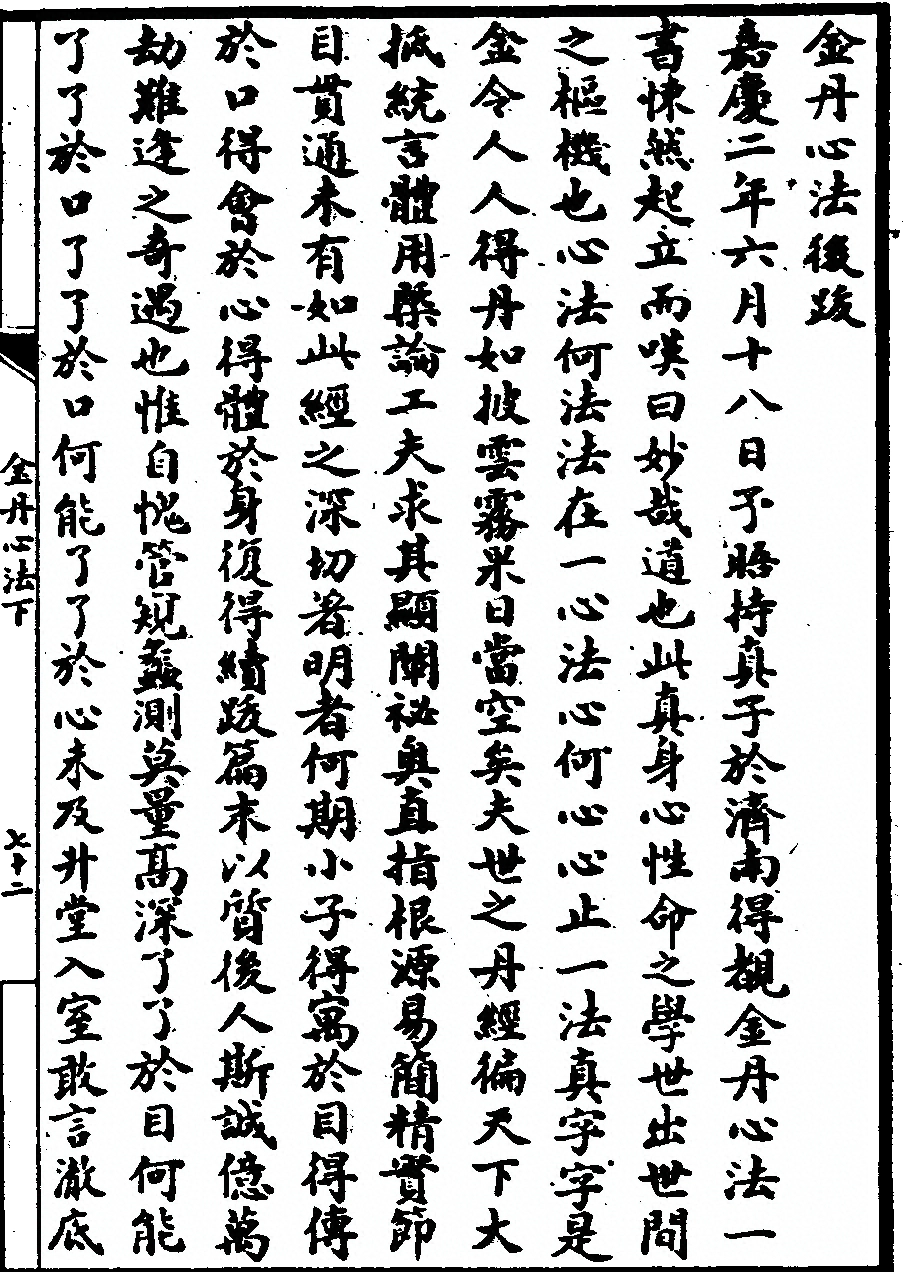 金丹心法後跋
嘉慶二年六月十八日予晤持真子於濟南得覩金丹心法一
書悚然起立而嘆曰妙哉道也此真身心性命之學世出世間
之樞機也心法何法法在一心法心何心心止一法真字字是
金令人人得丹如披雲霧杲日當空矣夫世之丹經徧天下大
抵統言體用藥論工夫求其顯闡祕奥直指根源易簡精實節
目貫通未有如此經之深切著明者何期小子得寓於目得傳
於口得會於心得體於身復得續跋篇末以質後人斯誠億萬
劫難逢之奇遇也惟自愧管窺蠡測莫量髙深了了於目何能
了了於口了了於口何能了了於心未及升堂入室敢言澈底
金丹心法下
七十二